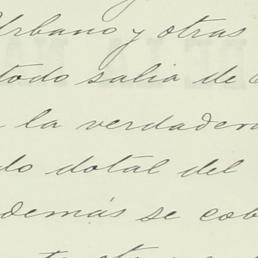 Urbano y otras
todo salia de
la verdadera
do dotal del
demás se cob